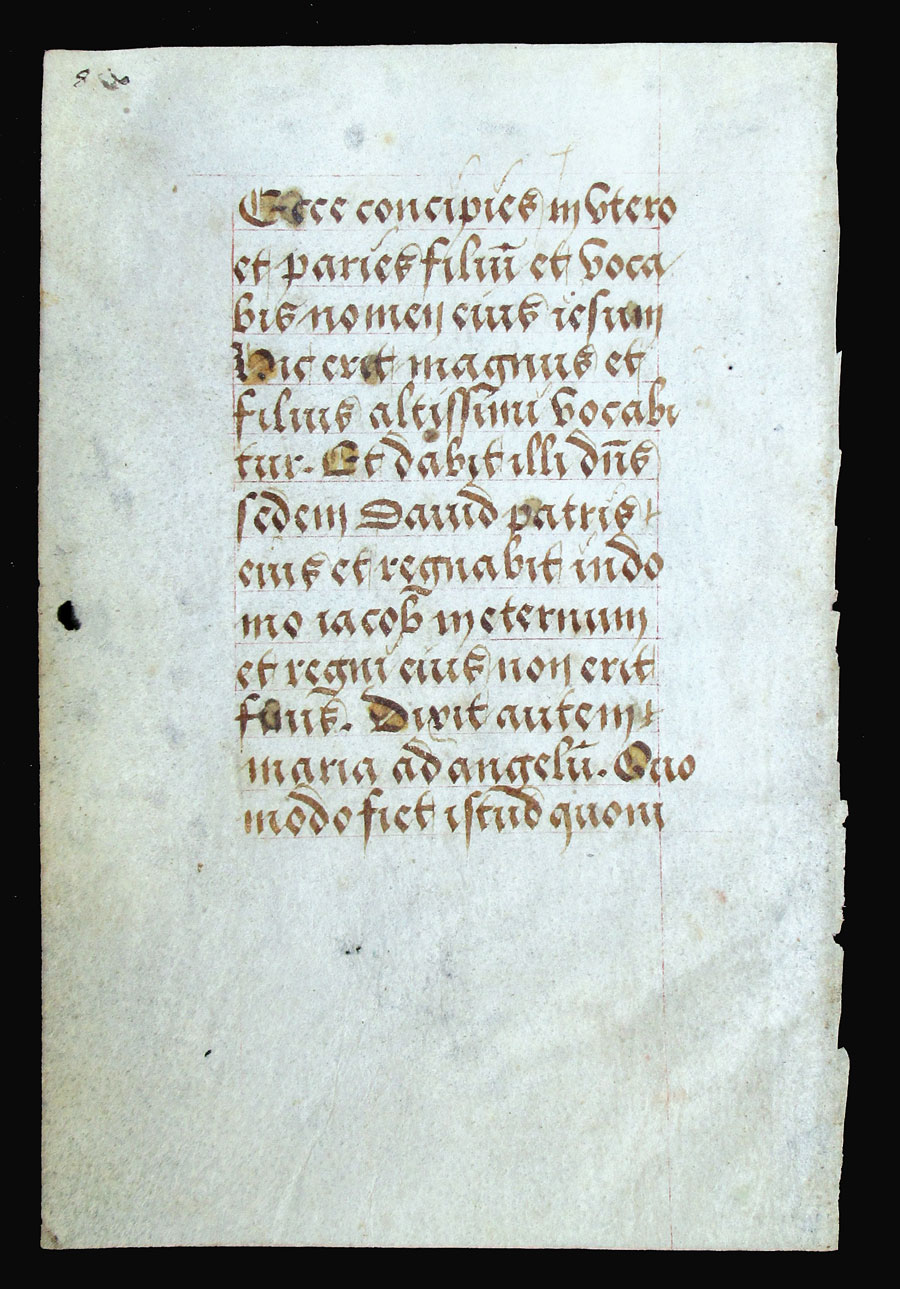 8
Ecce concipies in vtero
et paries filiū et voca
bis nomen eius iesum
Hic erit magnus et
filius altissimi vocabi
tur. Et dabit illi dn̄s
sedem Dauid patris
eius et regnabit in do
mo iacob in eternum
et regni eius non erit
finis. Dixit autem
maria ad angelū. Quo
modo fiet istud quoni